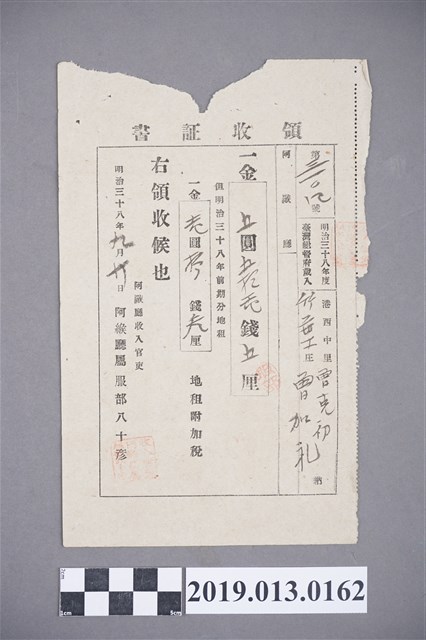 領收証書
第 號
阿緱廳
明治三十八年度
臺灣總督府歲入
港西中里
庄
曾克初
曾加礼
納
一金 五圓 錢五厘
但明治三十八年前期分地租
一金 圓 錢 厘 地租附加稅
右領收候也
明治三十八年九月 日
阿緱廳收入官吏
阿緱廳屬服部八十彥
2019.013.0162
1cm
5cm